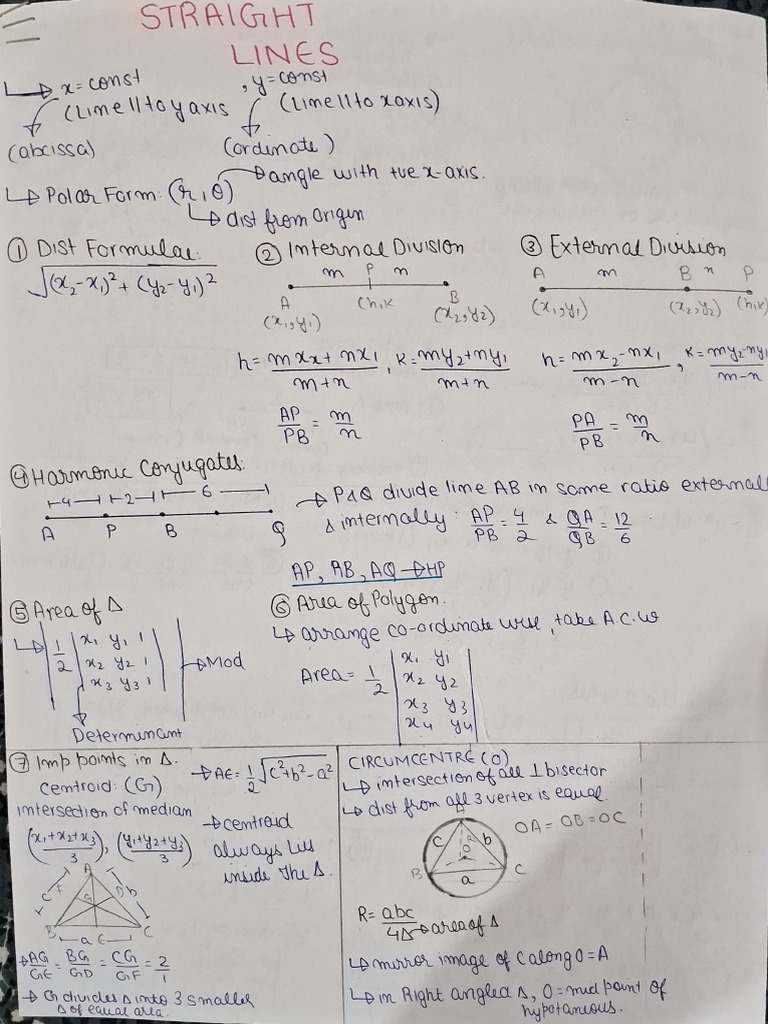 STRAIGHT
LINES
↳ x = const , y = const
(Line 11 to y axis (Line 11 to x axis)
(abcissa) (ordinate)
↳ Polar Form: (r, θ) → angle with +ve x-axis.
↳ dist from origin
① Dist Formulae:
√(x₂-x₁)² + (y₂-y₁)²
② Internal Division
m P n
A (h,k B
(x₁,y₁) (x₂,y₂)
h = mx₂ + nx₁ / m+n , k = my₂+ny₁ / m+n
AP/PB = m/n
③ External Division
A m B n P
(x₁,y₁) (x₂,y₂) (h,k)
h = mx₂-nx₁ / m-n , k = my₂-ny₁ / m-n
PA/PB = m/n
④ Harmonic Conjugates:
4 2 6
A P B Q
→ P & Q divide line AB in same ratio external
& internally: AP/PB = 4/2 & QA/QB = 12/6
AP, AB, AQ → HP
⑤ Area of Δ
↳ | 1/2 | x₁ y₁ 1
x₂ y₂ 1
x₃ y₃ 1 | | → Mod
Determinant
⑥ Area of Polygon.
↳ arrange co-ordinate wise, take A.C.W
Area = 1/2 | x₁ y₁
x₂ y₂
x₃ y₃
x₄ y₄ |
⑦ Imp points in Δ.
Centroid: (G)
intersection of median
(x₁+x₂+x₃ / 3), (y₁+y₂+y₃ / 3)
→ AE = 1/2 √c²+b²-a²
→ centroid
always lies
inside the Δ.
A
c F D b
G
B a E C
→ AG/GE = BG/GD = CG/GF = 2/1
→ G divides Δ into 3 smaller
Δ of equal area.
CIRCUMCENTRE (O)
↳ intersection of all ⊥ bisector
↳ dist from all 3 vertex is equal.
OA = OB = OC
A
c R b
O
B a C
R = abc / 4Δ → area of Δ
↳ mirror image of C along O = A
↳ in Right angled Δ, O = mid point of
hypotaneous.